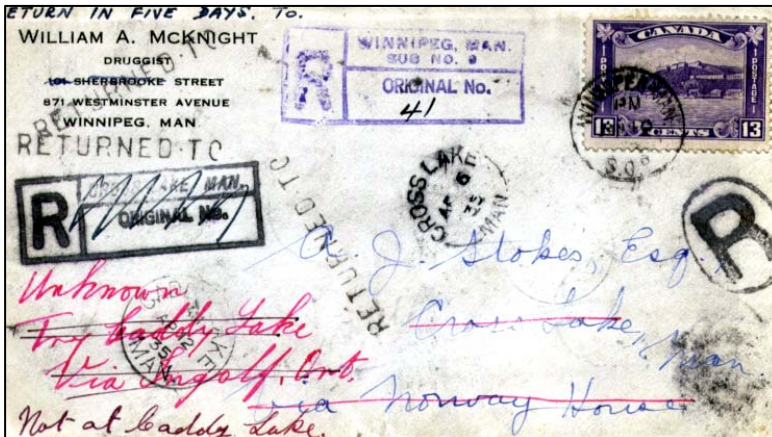 ETURN IN FIVE DAYS. To.
WILLIAM A. McKNIGHT
DRUGGIST
101 SHERBROOKE STREET
871 WESTMINSTER AVENUE
WINNIPEG, MAN
RETURNED TO
RETURNED TO
R
WINNIPEG, MAN.
SUB NO. 9
ORIGINAL No.
41
CANADA
POSTAGE
POSTAGE
13 CENTS 13
WINNIPEG MAN
PM
S.O. 9
R
CROSS LAKE, MAN.
ORIGINAL No.
CROSS LAKE
AP 6
35
MAN
RETURNED TO
R
A. J. Stokes, Esq.,
Cross Lake, Man.
via Norway House
Unknown
Try Caddy Lake
Via Ingolf, Ont.
Not at Caddy Lake.
AP 2
35
MAN